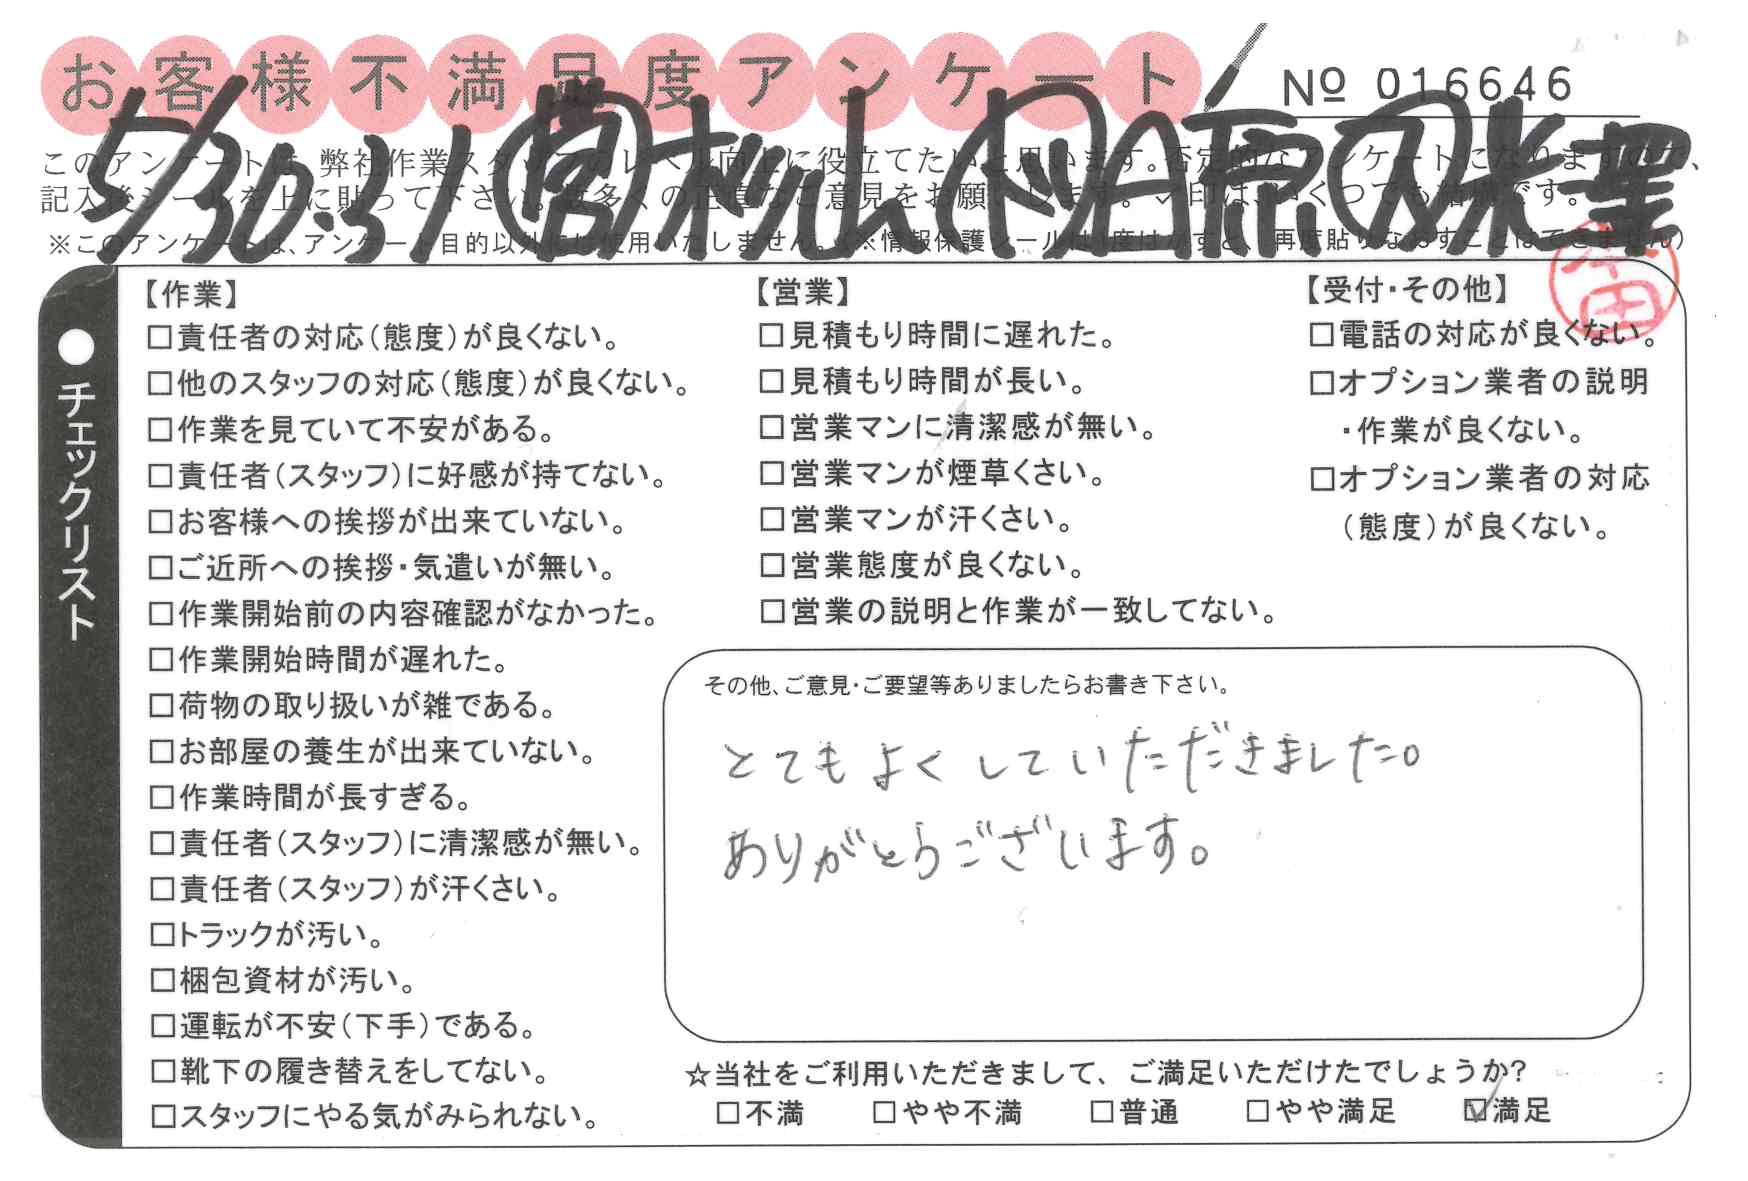 お客様不満足度アンケート
№ 016646
5/30.31 営 松山 ド 日原 入 米澤
このアンケートは、弊社作業スタッフのレベル向上に役立てたいと思います。否定的なアンケートになりますので、
記入後シールを上に貼って下さい。数多くの正直なご意見をお願いします。✓印は、いくつでも結構です。
※このアンケートは、アンケート目的以外には使用いたしません。(※情報保護シールは1度はがすと、再度貼りなおすことはできません)
●チェックリスト
【作業】
□責任者の対応(態度)が良くない。
□他のスタッフの対応(態度)が良くない。
□作業を見ていて不安がある。
□責任者(スタッフ)に好感が持てない。
□お客様への挨拶が出来ていない。
□ご近所への挨拶・気遣いが無い。
□作業開始前の内容確認がなかった。
□作業開始時間が遅れた。
□荷物の取り扱いが雑である。
□お部屋の養生が出来ていない。
□作業時間が長すぎる。
□責任者(スタッフ)に清潔感が無い。
□責任者(スタッフ)が汗くさい。
□トラックが汚い。
□梱包資材が汚い。
□運転が不安(下手)である。
□靴下の履き替えをしてない。
□スタッフにやる気がみられない。
【営業】
□見積もり時間に遅れた。
□見積もり時間が長い。
□営業マンに清潔感が無い。
□営業マンが煙草くさい。
□営業マンが汗くさい。
□営業態度が良くない。
□営業の説明と作業が一致してない。
【受付・その他】
□電話の対応が良くない。
□オプション業者の説明
・作業が良くない。
□オプション業者の対応
(態度)が良くない。
その他、ご意見・ご要望等ありましたらお書き下さい。
とてもよくしていただきました。
ありがとうございます。
☆当社をご利用いただきまして、ご満足いただけたでしょうか?
□不満 □やや不満 □普通 □やや満足 ☑満足